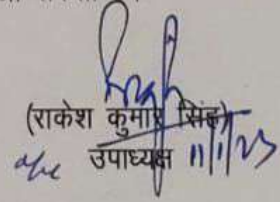 (राकेश कुमार सिंह)
उपाध्यक्ष 11/1/23